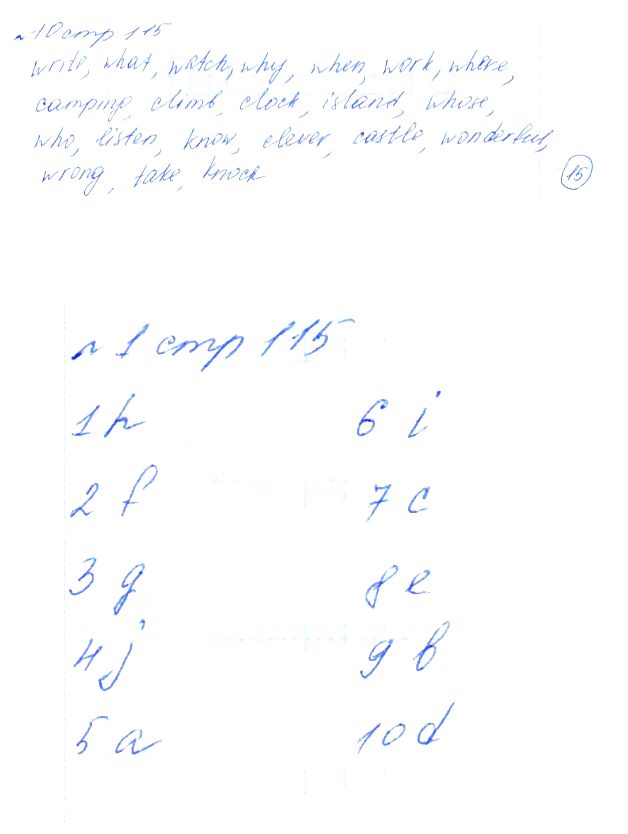 ~10 стр 115
write, what, watch, why, when, work, where,
camping, climb, clock, island, whose,
who, listen, know, clever, castle, wonderful,
wrong, take, knock
15
~1 стр 115
1 h
6 i
2 f
7 c
3 g
8 e
4 j
9 b
5 a
10 d